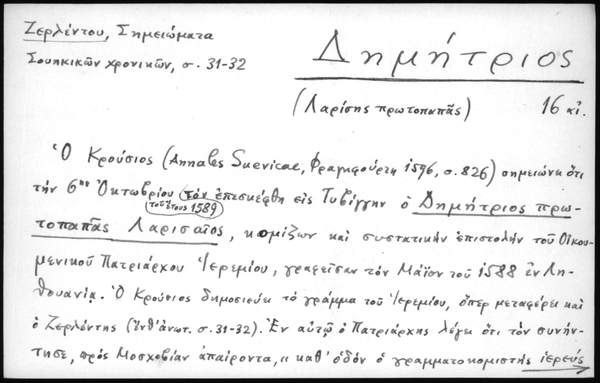 Ζερλέντου, Σημειώματα
Σουηκικῶν χρονικῶν, σ. 31-32
Δημήτριος
(Λαρίσης πρωτοπαπᾶς) 16 αἰ.
Ὁ Κρούσιος (Annales Suevicae, Φραγκφούρτη 1596, σ. 826) σημειώνει ὅτι
τήν 6ην Ὀκτωβρίου (τοῦ ἔτους 1589) τόν ἐπεσκέφθη εἰς Τυβίγγην ὁ Δημήτριος πρω-
τοπαπᾶς Λαρισαῖος, κομίζων καί συστατικήν ἐπιστολήν τοῦ Οἰκου-
μενικοῦ Πατριάρχου Ἱερεμίου, γραφεῖσαν τόν Μάϊον τοῦ 1588 ἐν Λη-
θουανίᾳ. Ὁ Κρούσιος δημοσιεύει τό γράμμα τοῦ Ἱερεμίου, ὅπερ μεταφέρει καί
ὁ Ζερλέντης (ἔνθ' ἀνωτ. σ. 31-32). Ἐν αὐτῷ ὁ Πατριάρχης λέγει ὅτι τόν συνήν-
τησε, πρός Μοσχοβίαν ἀπαίροντα, «καθ' ὁδόν ὁ γραμματοκομιστής ἱερεύς